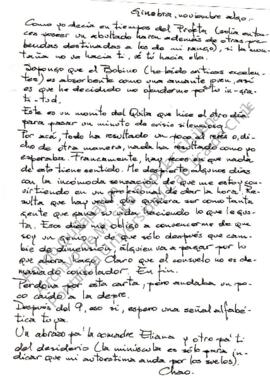 Ginebra, noviembre algo.
Como yo decía en tiempos del Profeta (solía entonces poseer un abultado harén además de otras prebendas destinadas a los de mi rango), si la montaña no va hacia ti, ve tú hacia ella.
Supongo que el Bobino (he leído críticas excelentes) es absorbente como una amante joven, así es que he decidido no ofenderme por tu ingratitud.
Este es un monito del Quila que hice el otro día para pasar un minuto de crisis silenciosa.
Por acá, todo ha resultado un poco al revés, dicho de otra manera, nada ha resultado como yo esperaba. Francamente, hay veces en que nada de esto tiene sentido. Me despierto algunos días con la incómoda sensación de que me estoy convirtiendo en un profesional de dar la hora. Resulta que hay veces que quisiera ser como tanta gente que gana su vida haciendo lo que le gusta. Esos días me obligo a convencerme de que soy un genio, de que sólo después que cambie de dimensión, alguien va a pagar por lo que ahora hago. Claro que el consuelo no es demasiado consolador. En fin.
Perdona por esta carta, pero andaba un poco caído a la depre.
Después del 9, eso sí, espero una señal alfabética tuya.
Un abrazo pa' la comadre Eliana y otro pa' ti del desiderio (la minúscula es sólo para indicar que mi autoestima anda por los suelos).
Chao.